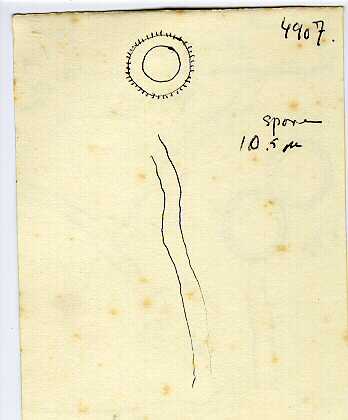 4907.
spore
10.5 µ